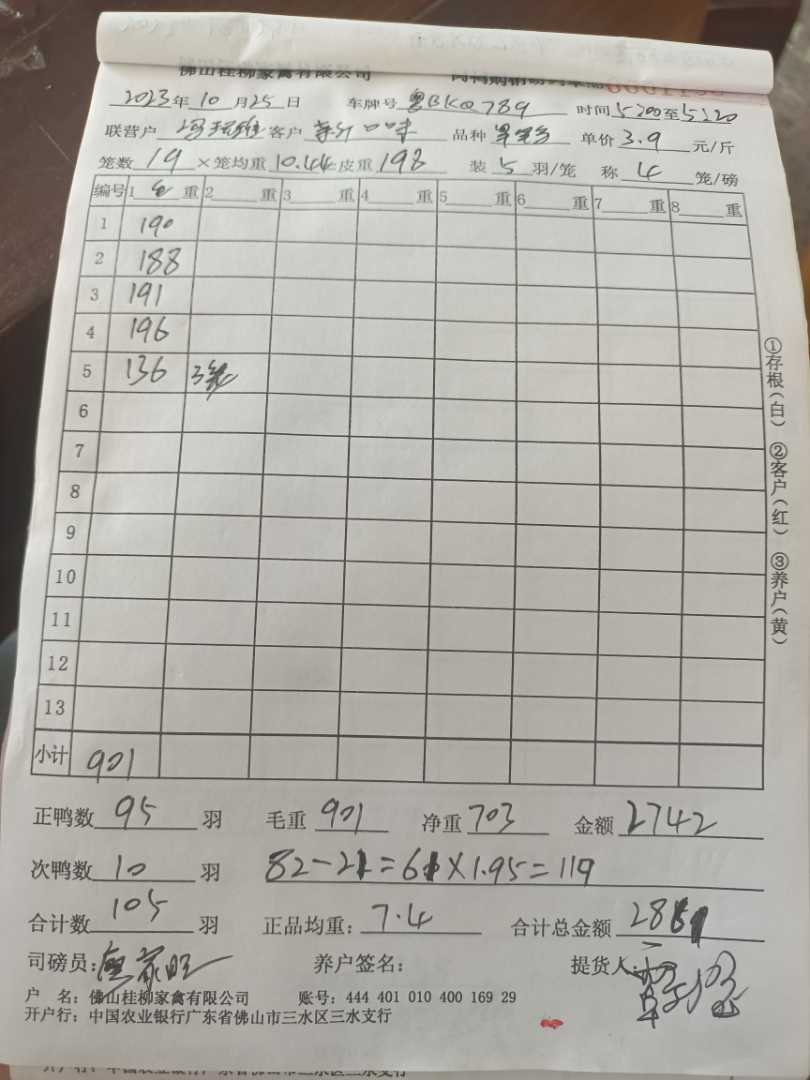 佛山桂柳家禽有限公司
2023年10月25日 车牌号 粤BKQ789 时间5:00至5:20
联营户 客户 品种 单价3.9元/斤
笼数19×笼均重10.44皮重198 装5羽/笼 称4笼/磅
编号 1 重 2 重 3 重 4 重 5 重 6 重 7 重 8 重
1 190
2 188
3 191
4 196
5 136 3笼
6
7
8
9
10
11
12
13
小计 901
正鸭数95羽 毛重901 净重703 金额2742
次鸭数10羽 82-21=61×1.95=119
合计数105羽 正品均重:7.4 合计总金额2861
司磅员: 养户签名: 提货人:
户 名:佛山桂柳家禽有限公司 账号:444 401 010 400 169 29
开户行:中国农业银行广东省佛山市三水区三水支行
①存根(白) ②客户(红) ③养户(黄)